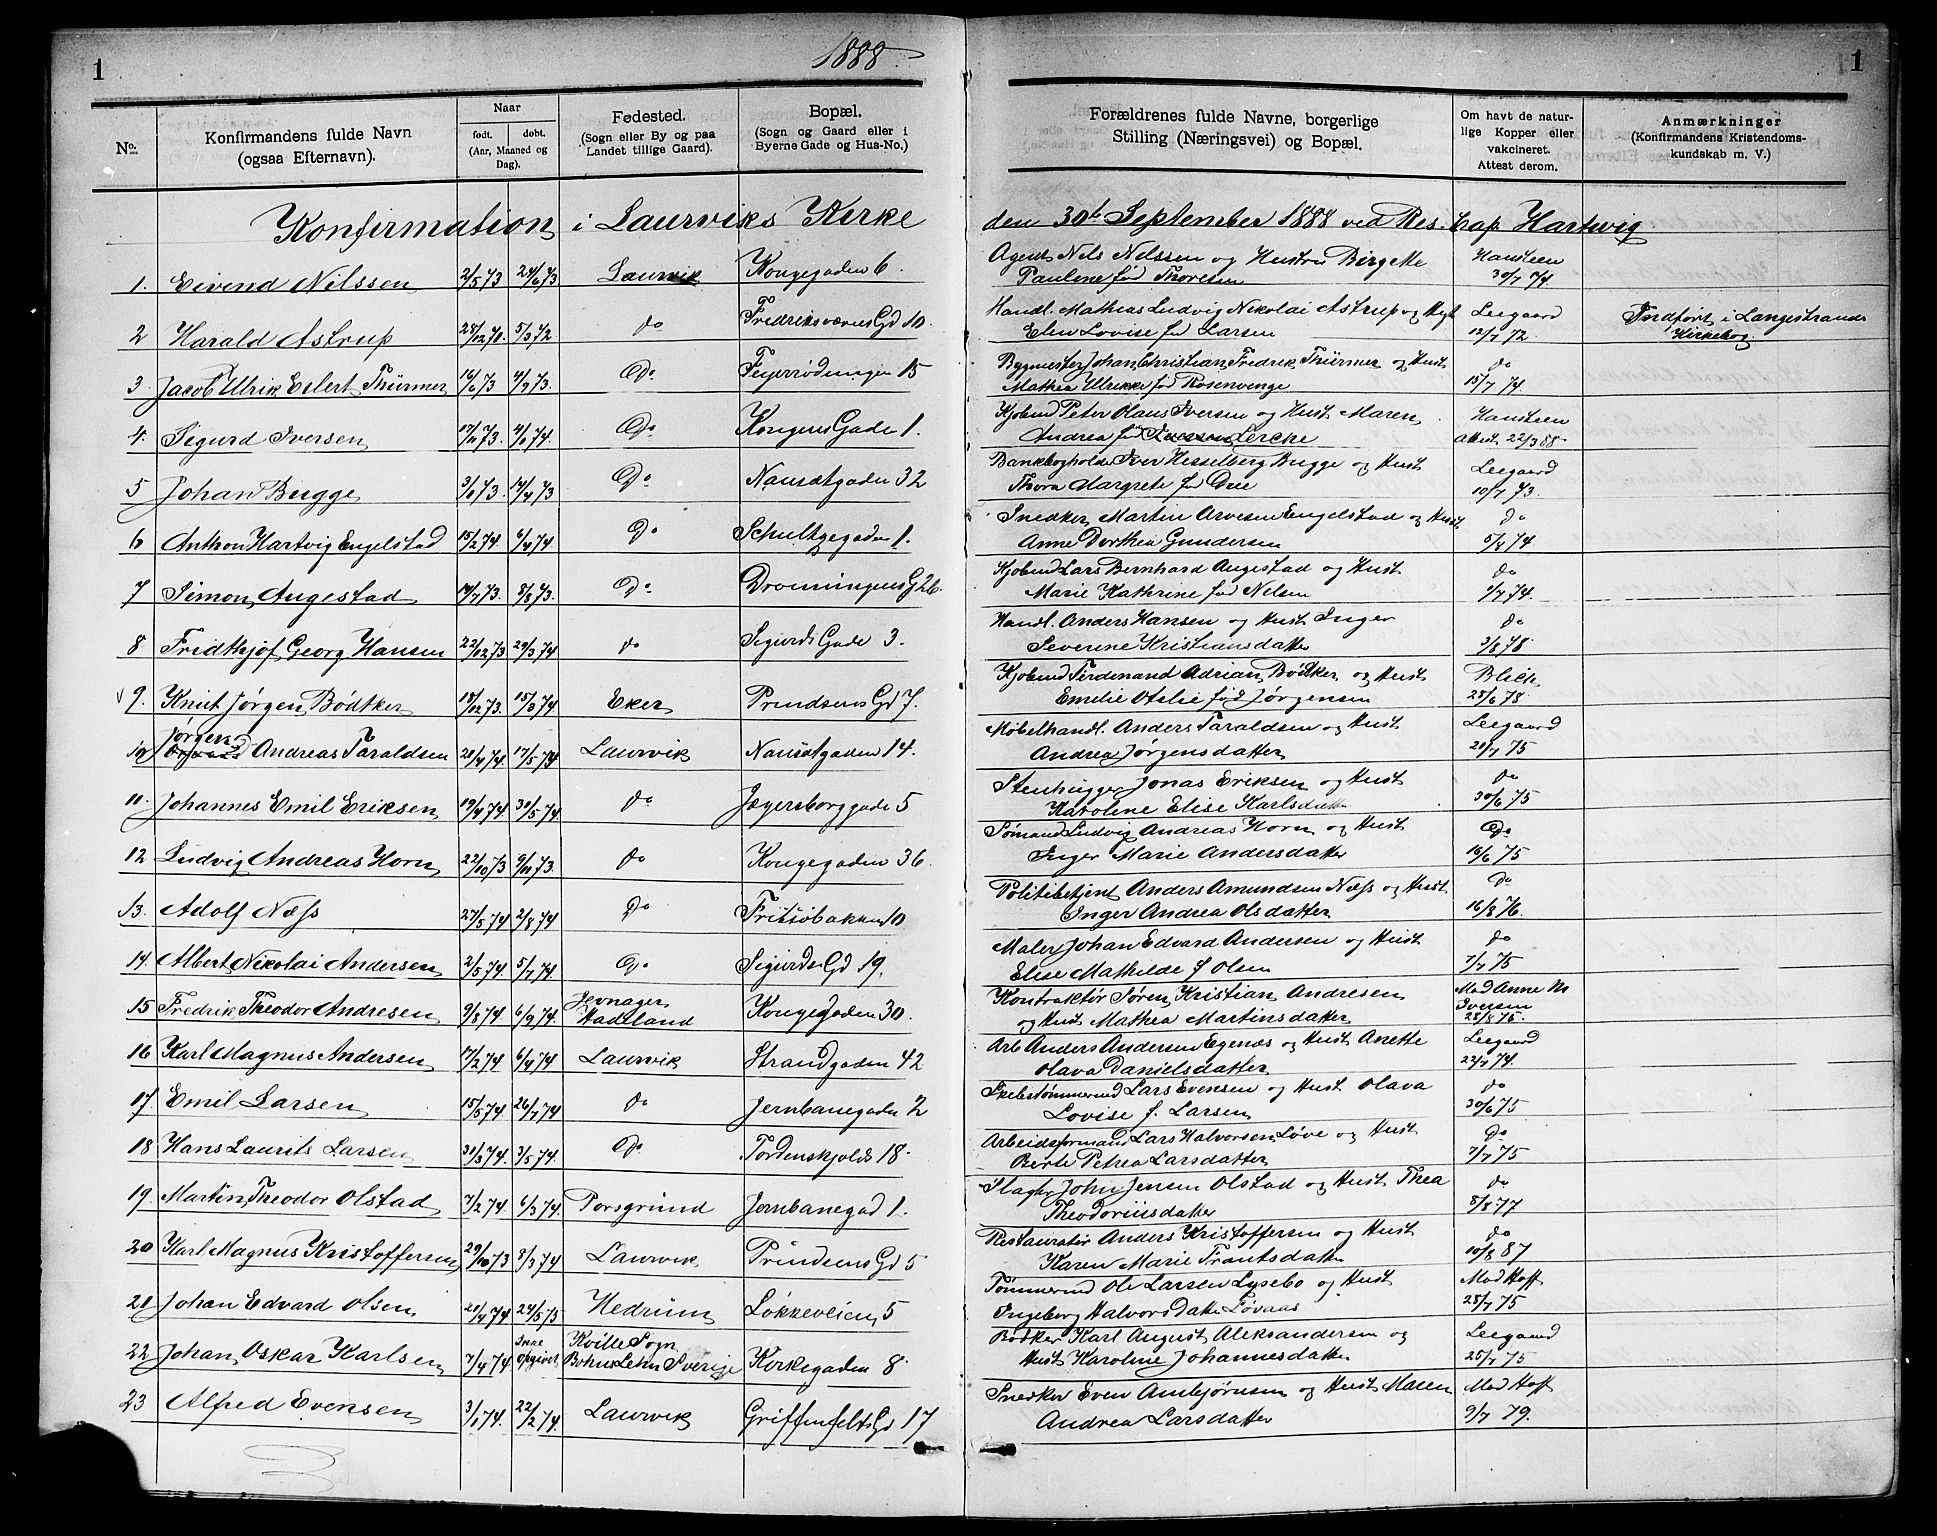 1
1888.
1
No.
Konfirmandens fulde Navn
(ogsaa Efternavn).
Naar
født.
døbt.
(Aar, Maaned og
Dag).
Fødested.
(Sogn eller By og paa
Landet tillige Gaard).
Bopæl.
(Sogn og Gaard eller i
Byerne Gade og Hus-No.)
Forældrenes fulde Navne, borgerlige
Stilling (Næringsvei) og Bopæl.
Om havt de natur-
lige Kopper eller
vakcineret.
Attest derom.
Anmærkninger
(Konfirmandens Kristendoms-
kundskab m. V.)
Konfirmation i Laurviks Kirke den 30t September 1888 ved Res. Cap Hartwig
1. Eivind Nilssen 2/5 73 24/6 73 Laurvik Kongegaden 6. Agent Nels Nelssen og Hustru Birgitte Hansteen
Paulene fød Thoresen 30/7 74.
2 Harald Astrup 28/12 71. 5/3 72 do Fredriksværns Gd 10. Handl. Mathias Ludvig Nikolai Astrup og Hst Leegaard Indført i Langestrands
Elen Lovise fød Larsen 12/7 72. Kirkebog.
3. Jacob Ulrik Eilert Thürmer 16/6 73 4/7 73. Do Fejerrødningen 15 Bygmester Johan Christian Fredrik Thürmer og Hust do
Mathea Ulrikke fød Rosenvenge 15/7 74.
4. Sigurd Iversen 17/11 73. 4/1 74. Do Kongens Gade 1. Kjøbmd Peter Olaus Iversen og Hust Maren Hansteen
Andrea fød Lerche Attest 22/3 88
5 Johan Bugge 3/1 73. 14/4 73 Do Nansetgaden 32 Bankbogholder Iver Hesselberg Bugge og Hust Leegaard
Thora Margrete fød Deie 10/7 73.
6 Anthon Hartvig Engelstad 15/2 74. 6/4 74 Do Schultzegaden 1. Snedker Martin Arvesen Engelstad og Hust do
Anne Dorthea Gundersen 5/8 74
7 Simon Augestad 14/7 73. 8/8 73. Do Dronningens G 26. Kjøbmd Lars Bernhard Augestad og Hust do
Marie Kathrine fød Nelsen 1/7 74.
8 Fridthjof Georg Hansen 22/12 73 29/3 74 do Sigurds Gade 3. Handl. Anders Hansen og Hust Inger do
Severine Kristiansdatter 3/8 78
9. Knut Jørgen Bødtker 18/12 73. 15/3 74 Eker Prindsens Gd 7. Kjøbmd Ferdinand Adrian Bødtker og Hust Blich
Emelie Otelie fød Jørgensen 28/6 78.
10 Jørgen Andreas Taraldsen 20/4 74 17/5 74 Laurvik Nansetgaden 14. Møbelhandl. Anders Taraldsen og Hust Leegaard
Andrea Jørgensdatter 20/7 75
11. Johannes Emil Eriksen 19/4 74. 30/5 74 do Jægersborggade 5 Stenhugger Jonas Eriksen og Hust do
Karoline Elise Karlsdatter 30/6 75
12 Ludvig Andreas Horn 22/10 73 9/11 73. do Kongegaden 36. Sømand Ludvig Andreas Horn og Hust Do
Inger Marie Andersdatter 16/6 75
13. Adolf Næss 27/5 74 2/8 74 Do Fritsøbakken 10 Politibetjent Anders Amundsen Næss og Hust Do
Inger Andrea Olsdatter 16/8 76.
14. Albert Nikolai Andersen 2/5 74 5/7 74. Do Sigurds Gd 19. Maler Johan Edvard Andersen og Hust do
Elise Mathilde f Olsen 7/7 75
15 Fredrik Theodor Andresen 9/8 74 6/9 74. Jevnager Hadeland Kongegaden 30. Kontraktør Søren Kristian Andresen Mad Anne M
og Hust Mathea Martinsdatter Iversen 28/8 75.
16 Karl Magnus Andersen 17/2 74 6/4 74 Laurvik Strandgaden 42 Arb Anders Andersen Egenæs og Hust Anette Leegaard
Olava Danielsdatter 22/7 74.
17 Emil Larsen 15/5 74 26/7 74. do Jernbanegaden 2 Skibstømmermd Lars Evensen og Hust Olava do
Lovise f. Larsen 30/6 75
18 Hans Laurits Larsen 31/3 74. 3/5 74. Do Tordenskjolds 18. Arbeidsformand Lars Halvorsen Løve og Hust Do
Berte Petrea Larsdatter 7/7 75
19. Martin Theodor Olstad 7/2 74. 6/3 74. Porsgrund Jernbanegad 1. Slagter John Jensen Olstad og Hust Thea do
Theodoriusdatter 8/8 77
20 Karl Magnus Kristoffersen 29/10 73 8/3 74 Laurvik Prindsens Gd 5 Restauratør Anders Kristoffersen og Hust do
Karen Marie Frantsdatter 10/8 87
21 Johan Edvard Olsen 20/4 74 24/5 75 Hedrum Løkkeveien 5 Tømmermd Ole Larsen Lysebo og Hust Mad Hoff
Ingeborg Halvorsdatter Løvaas 28/7 75
22 Johan Oskar Karlsen 7/4 74 Ikke opgivet Kville Sogn Bohus Lehn Sverige Kirkegaden 8. Bødker Karl August Aleksandersen og Leegaard
Hust Karoline Johannesdatter 25/7 75
23 Alfred Evensen 3/1 74. 22/2 74. Laurvik Griffenfelts Gd 17 Snedker Even Ambjørnsen og Hust Maren Mad Hoff
Andrea Larsdatter 9/7 79.